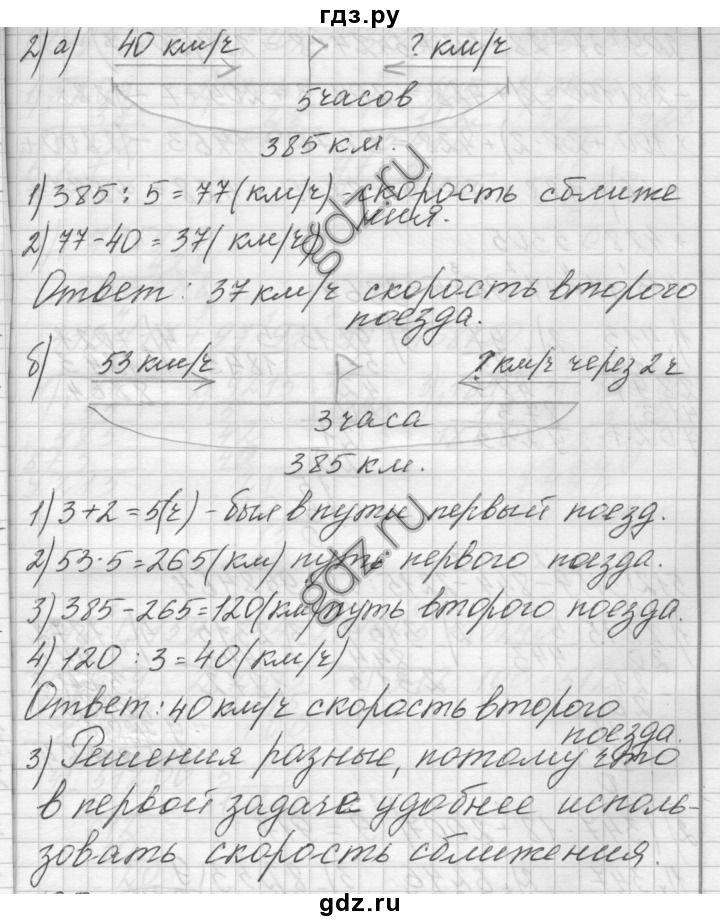 гдз.ру
2) а) 40 км/ч ? км/ч
5 часов
385 км.
1) 385 : 5 = 77 (км/ч) - скорость сближе
ния.
2) 77 - 40 = 37 (км/ч)
Ответ: 37 км/ч скорость второго
поезда.
б) 53 км/ч ? км/ч через 2 ч
3 часа
385 км.
1) 3 + 2 = 5 (ч) - был в пути первый поезд.
2) 53 · 5 = 265 (км) путь первого поезда.
3) 385 - 265 = 120 (км) путь второго поезда.
4) 120 : 3 = 40 (км/ч)
Ответ: 40 км/ч скорость второго
поезда.
3) Решения разные, потому что
в первой задаче удобнее исполь-
зовать скорость сближения.
gdz.ru
gdz.ru
gdz.ru